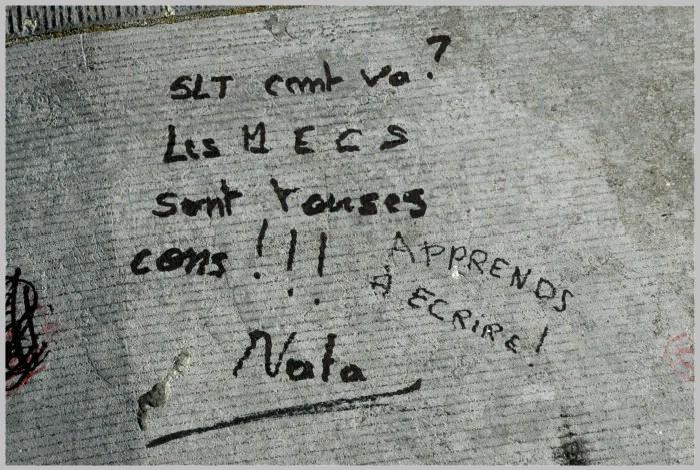 SLT cmt va?
Les MECS
sont touses
cons!!!
APPRENDS
À ECRIRE!
Nata